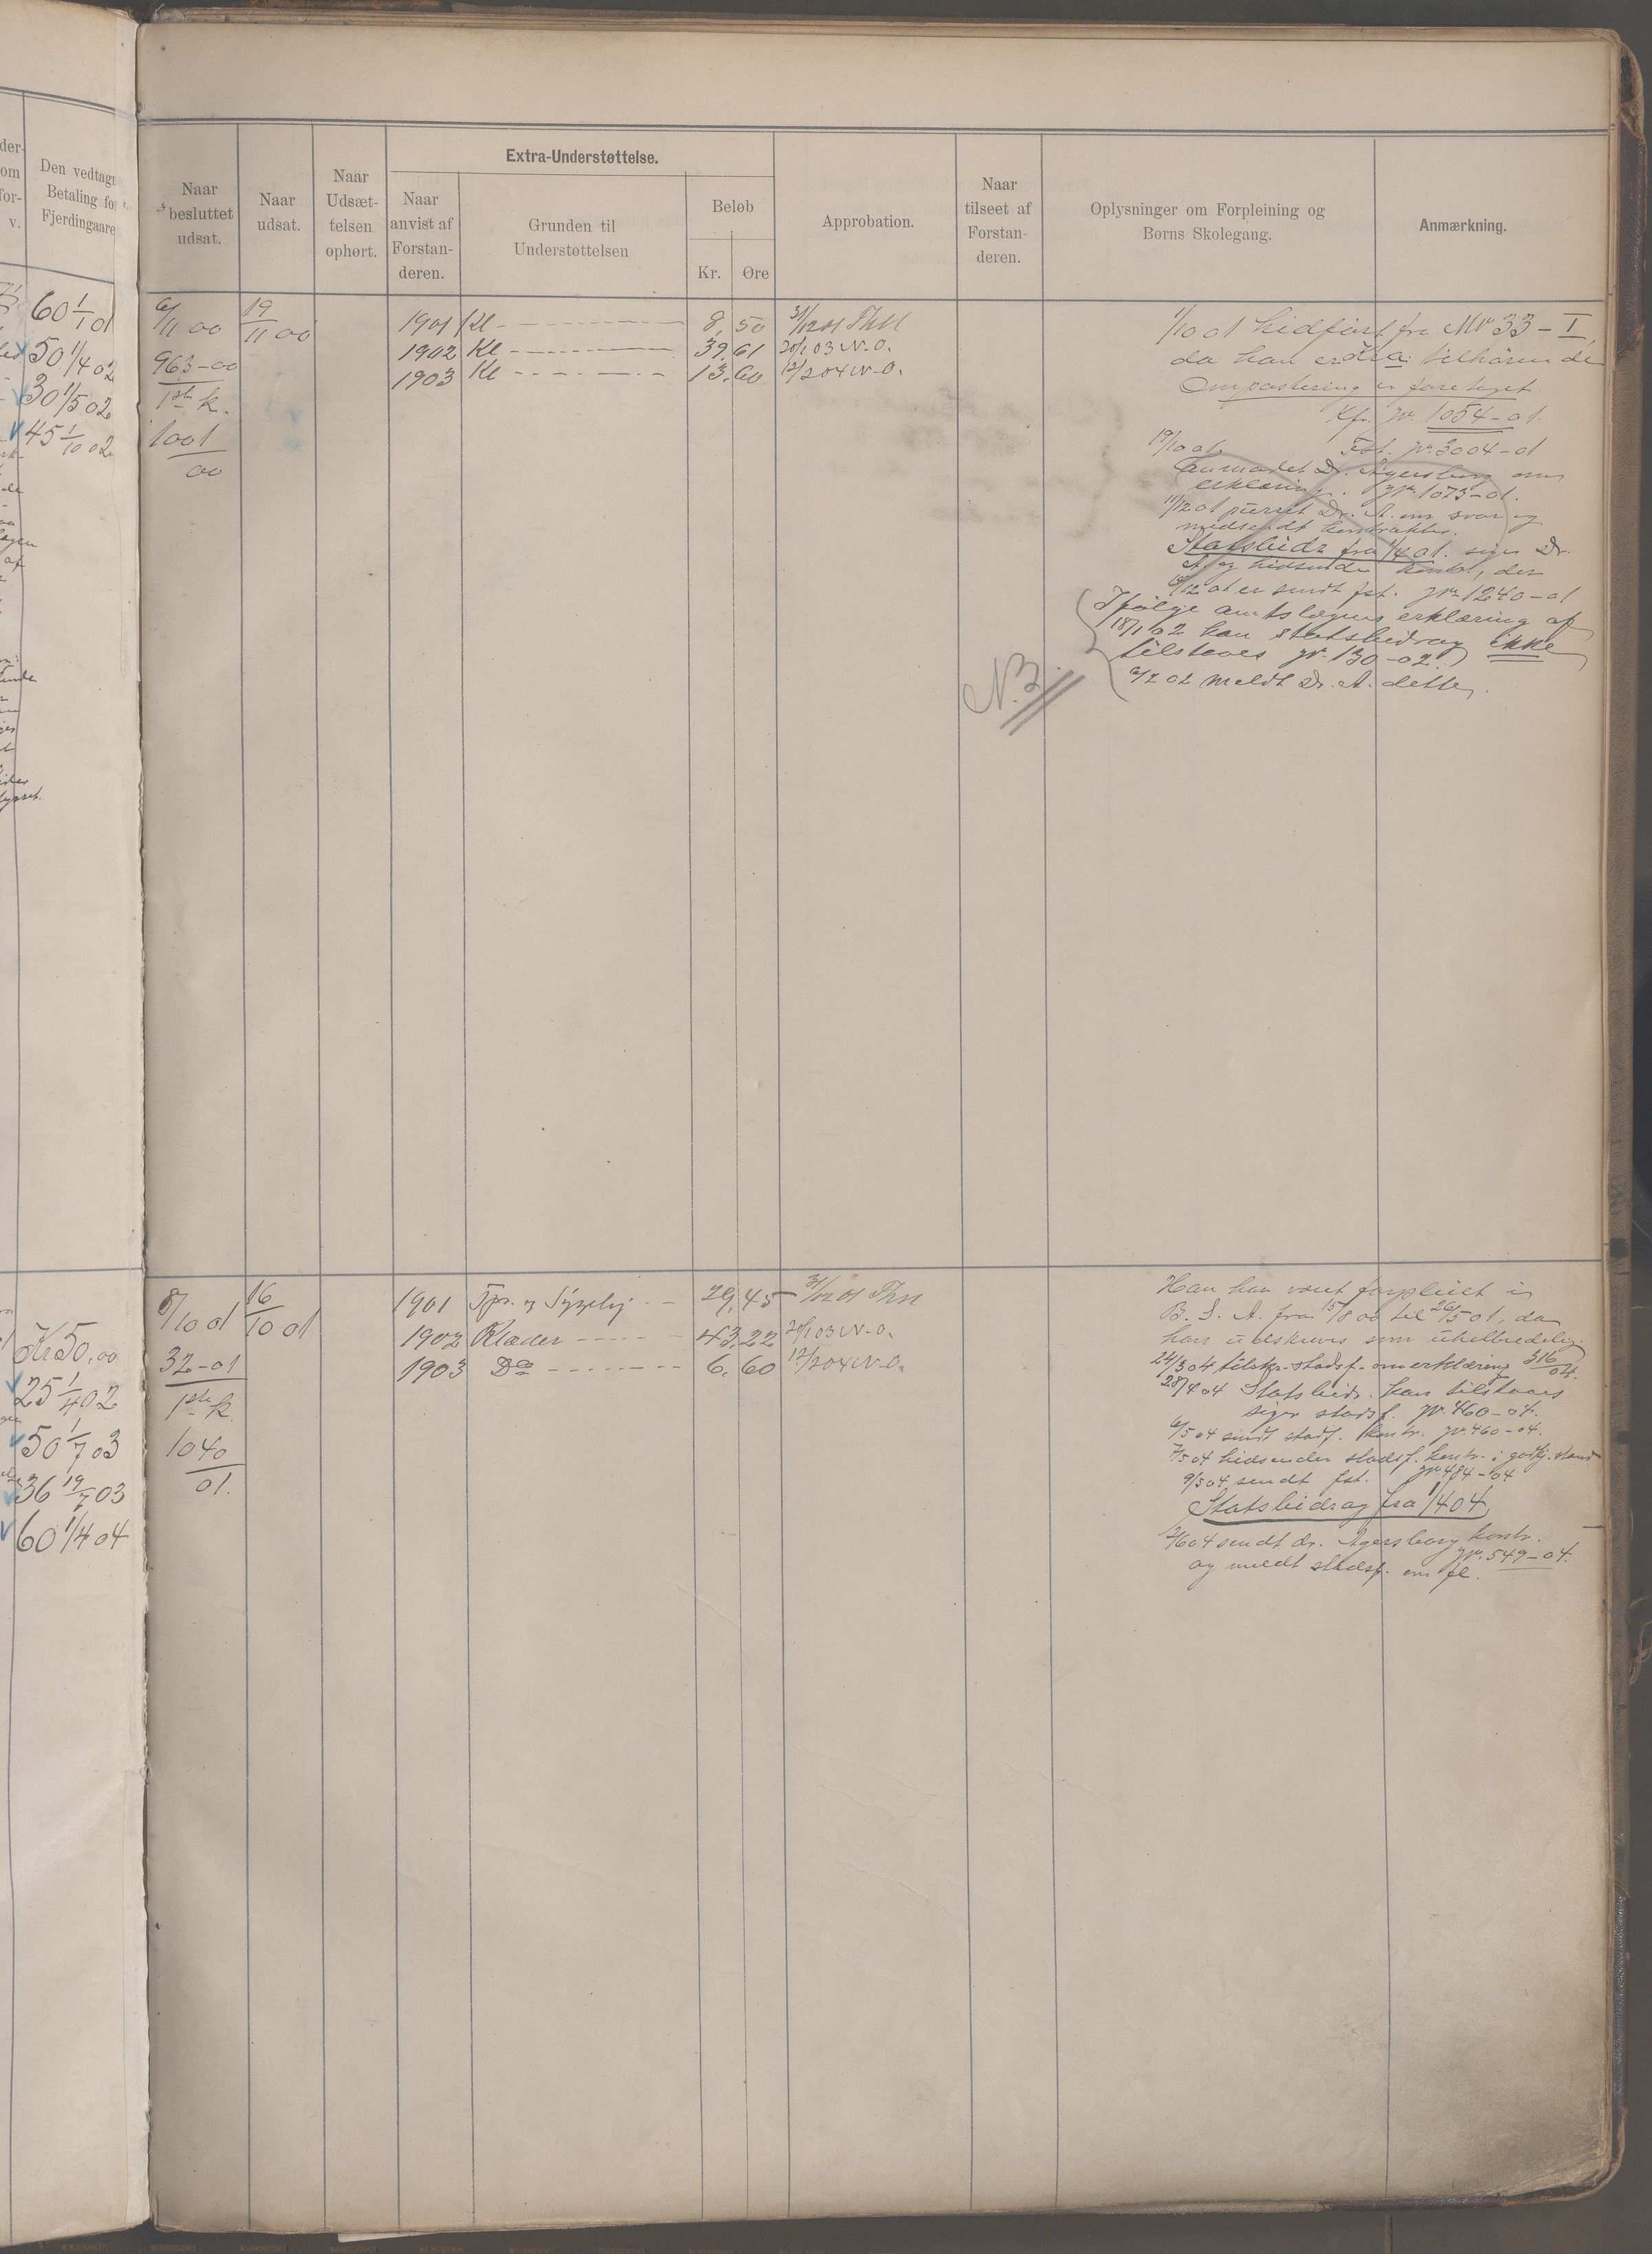 Den vedtagne
Betaling for
Fjerdingaaret
60 1/1 01
50 1/4 02
30 1/5 02
45 1/10 02
Kr 50,00
25 1/4 02
50 1/7 03
36 19/7 03
60 1/4 04
Naar
besluttet
udsat.
Naar
udsat.
Naar
Udsæt-
telsen
ophørt.
Extra-Understøttelse.
Naar
anvist af
Forstan-
deren.
Grunden til
Understøttelsen
Beløb
Kr. Øre
Approbation.
Naar
tilseet af
Forstan-
deren.
Oplysninger om Forpleining og
Børns Skolegang.
Anmærkning.
6/11 00 19/11 00
963-00
1ste k.
1001
00
1901 Kl 8,50 31/12 01
1902 Kl 39,61 20/1 03 N-O.
1903 Kl 13,60 12/2 04 N-O.
1/10 01 hidført fra Nr 33-I,
da han er tilhørende
Ompostering er foretaget.
Kfr. jr. 1054-01
19/10 01. Fst. jr. 3004-01
anmodet Dr. Agersborg om
erklæring. jr. 1073-01.
11/12 01 purret Dr. A. om svar og
medsendt kontrakter.
Statsbidr. fra 1/4 01. siger Dr.
A. og hidsender kontr., der
12 01 er sendt fst. jr. 1240-01
Ifølge amtslægens erklæring af
18/1 02 kan statsbidrag ikke
tilstaaes jr. 130-02.
NB.
2 02 meldt Dr. A. dette.
8/10 01 16/10 01
32-01
1ste k.
1040
01.
1901 29,45 31/12 01
1902 Klæder 43,22 20/1 03 N-O.
1903 Do 6,60 12/2 04 N-O.
Han har været forpleiet i
B. S. A. fra 15/8 00 til 26/5 01, da
han utskreves som uhelbredelig.
24/3 04 tilskr. stadsf. om erklæring 316/04.
28/4 04 Statsbidr. kan tilstaaes
siger stadsf. jr. 460-04.
6/5 04 sendt stadf. kontr. jr. 460-04.
7/5 04 hidsender stadsf. kontr. i godkj. stand
9/5 04 sendt fst. jr 484-04
Statsbidrag fra 1/4 04
2/6 04 sendt dr. Agersborg kontr.
jr. 549-04.
og meldt stadsf. om fl.